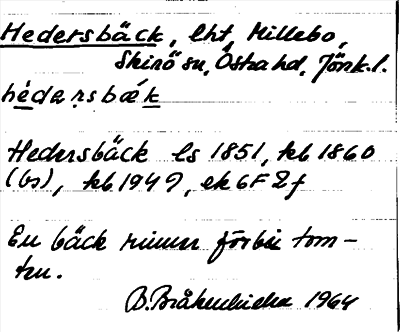 Hedersbäck, lht, Millebo,
Skirö sn, Östra hd, Jönk.l.
hédaṛsbæ̀k
Hedersbäck ls 1851, teb 1860
(bs), teb 1949, ek 6F 2f
En bäck rinner förbi tom-
ten.
B. 1964